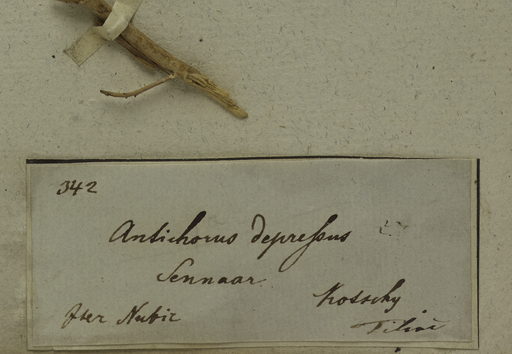 342
Antichorus depressus L.
Sennaar
Kotschy
Iter Nubic
Tiliac